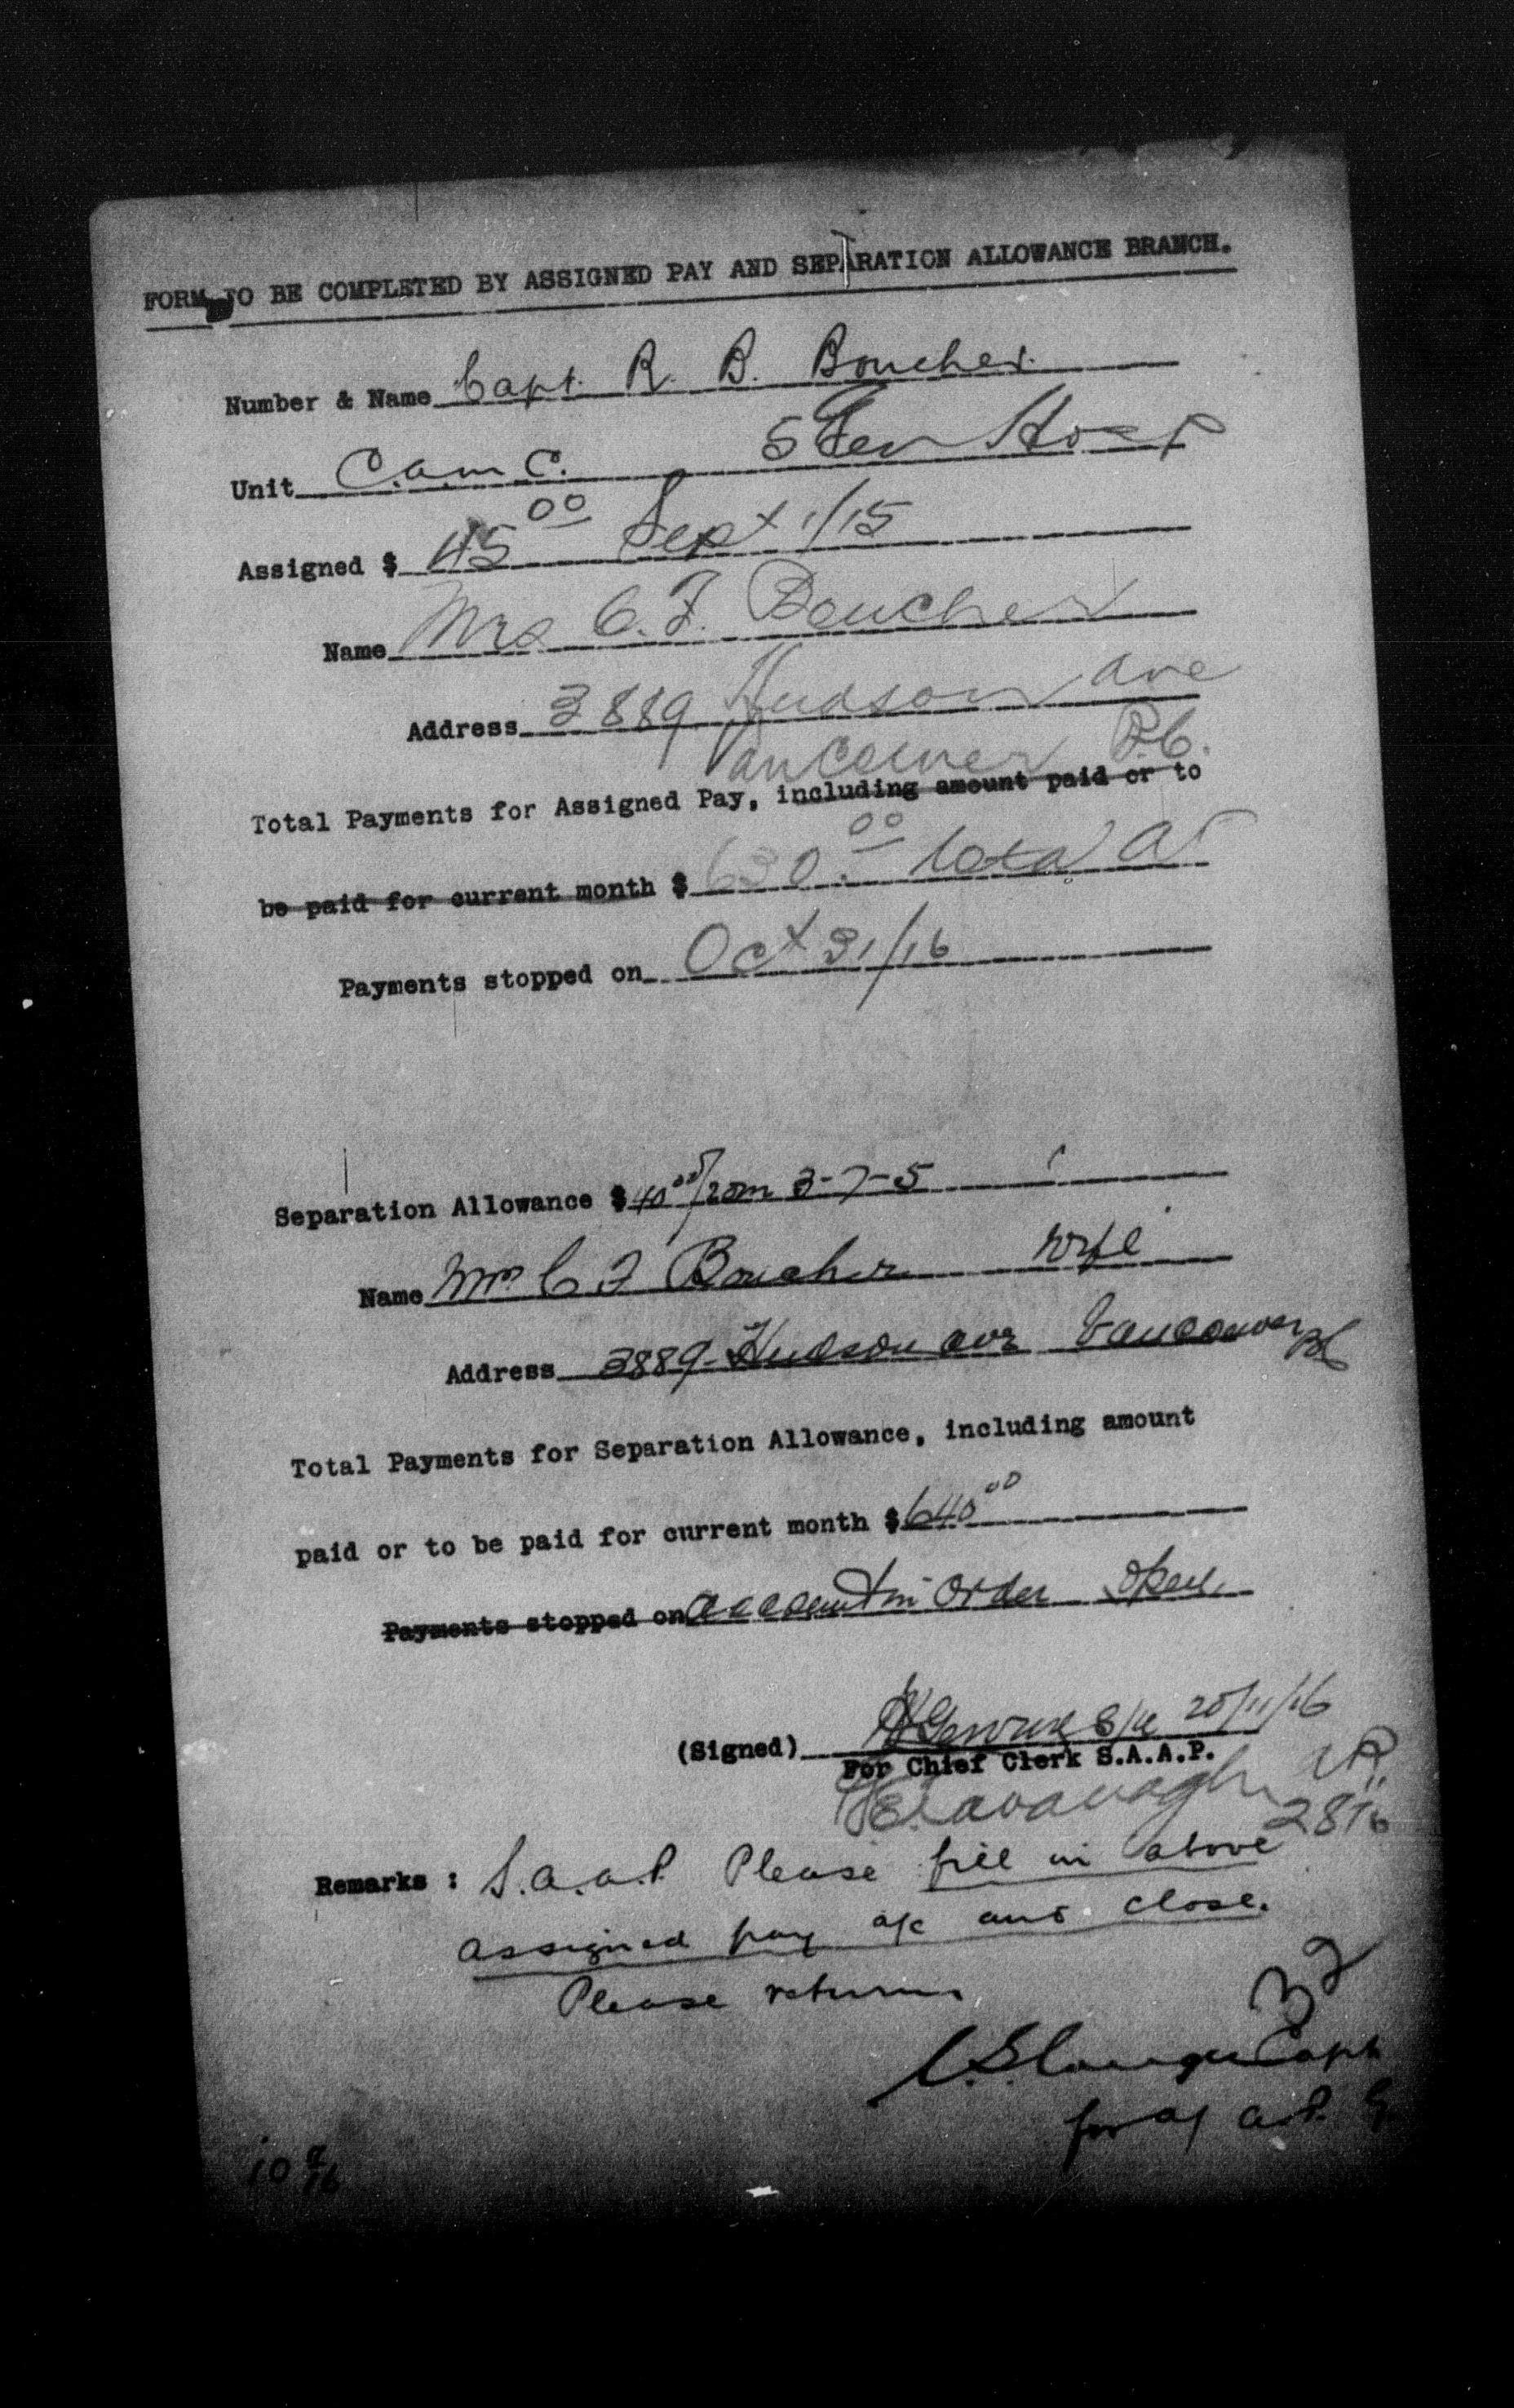 FORM TO BE COMPLETED BY ASSIGNED PAY AND SEPARATION ALLOWANCE BRANCH.
Number & Name Capt. R. B. Boucher.
Unit C.a.m.C. 5 Gen Hosp
Assigned $ 45 00 Sept 1/15
Name Mrs C. F. Boucher
Address 3889 Hudson ave
Vancouver B.C.
Total Payments for Assigned Pay, including amount paid or to
be paid for current month $ 630.00 total a
Payments stopped on Oct 31/16
Separation Allowance $ 40 00 from 3-7-5
Name Mrs C F Boucher wife
Address 3889 Hudson ave Vancouver BC
Total Payments for Separation Allowance, including amount
paid or to be paid for current month $ 640 00
Payments stopped on account in order open
(Signed) 8/11 25/11/16
For Chief Clerk S.A.A.P.
Kavanagh
28
Remarks : S.a.a.P. Please fill in above
assigned pay a/c and close.
Please return
Capt
for a/ a.P.
10